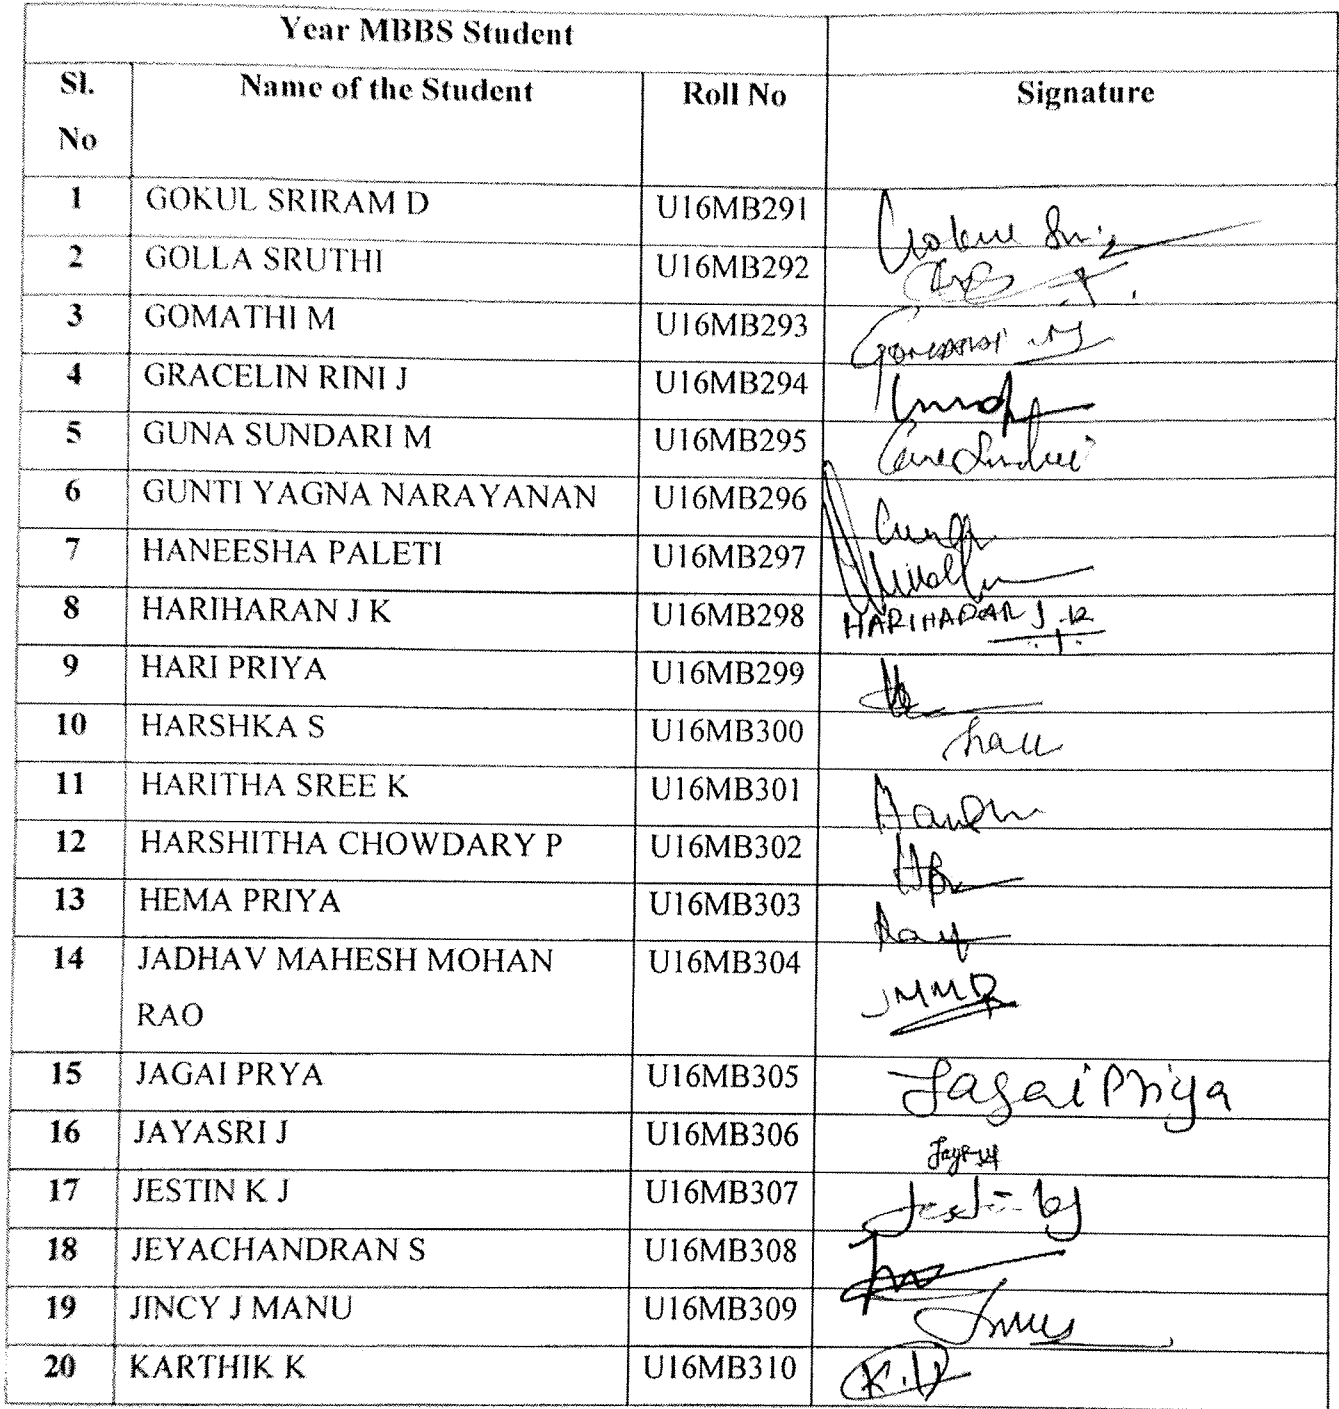 Year MBBS Student
Sl. No Name of the Student Roll No Signature
1 GOKUL SRIRAM D U16MB291
2 GOLLA SRUTHI U16MB292
3 GOMATHI M U16MB293
4 GRACELIN RINI J U16MB294
5 GUNA SUNDARI M U16MB295
6 GUNTI YAGNA NARAYANAN U16MB296
7 HANEESHA PALETI U16MB297
8 HARIHARAN J K U16MB298 HARIHARAN J.K
9 HARI PRIYA U16MB299
10 HARSHKA S U16MB300
11 HARITHA SREE K U16MB301
12 HARSHITHA CHOWDARY P U16MB302
13 HEMA PRIYA U16MB303
14 JADHAV MAHESH MOHAN U16MB304 JMMR
RAO
15 JAGAI PRYA U16MB305 Jagai Priya
16 JAYASRI J U16MB306
17 JESTIN K J U16MB307 Jestin kj
18 JEYACHANDRAN S U16MB308
19 JINCY J MANU U16MB309
20 KARTHIK K U16MB310